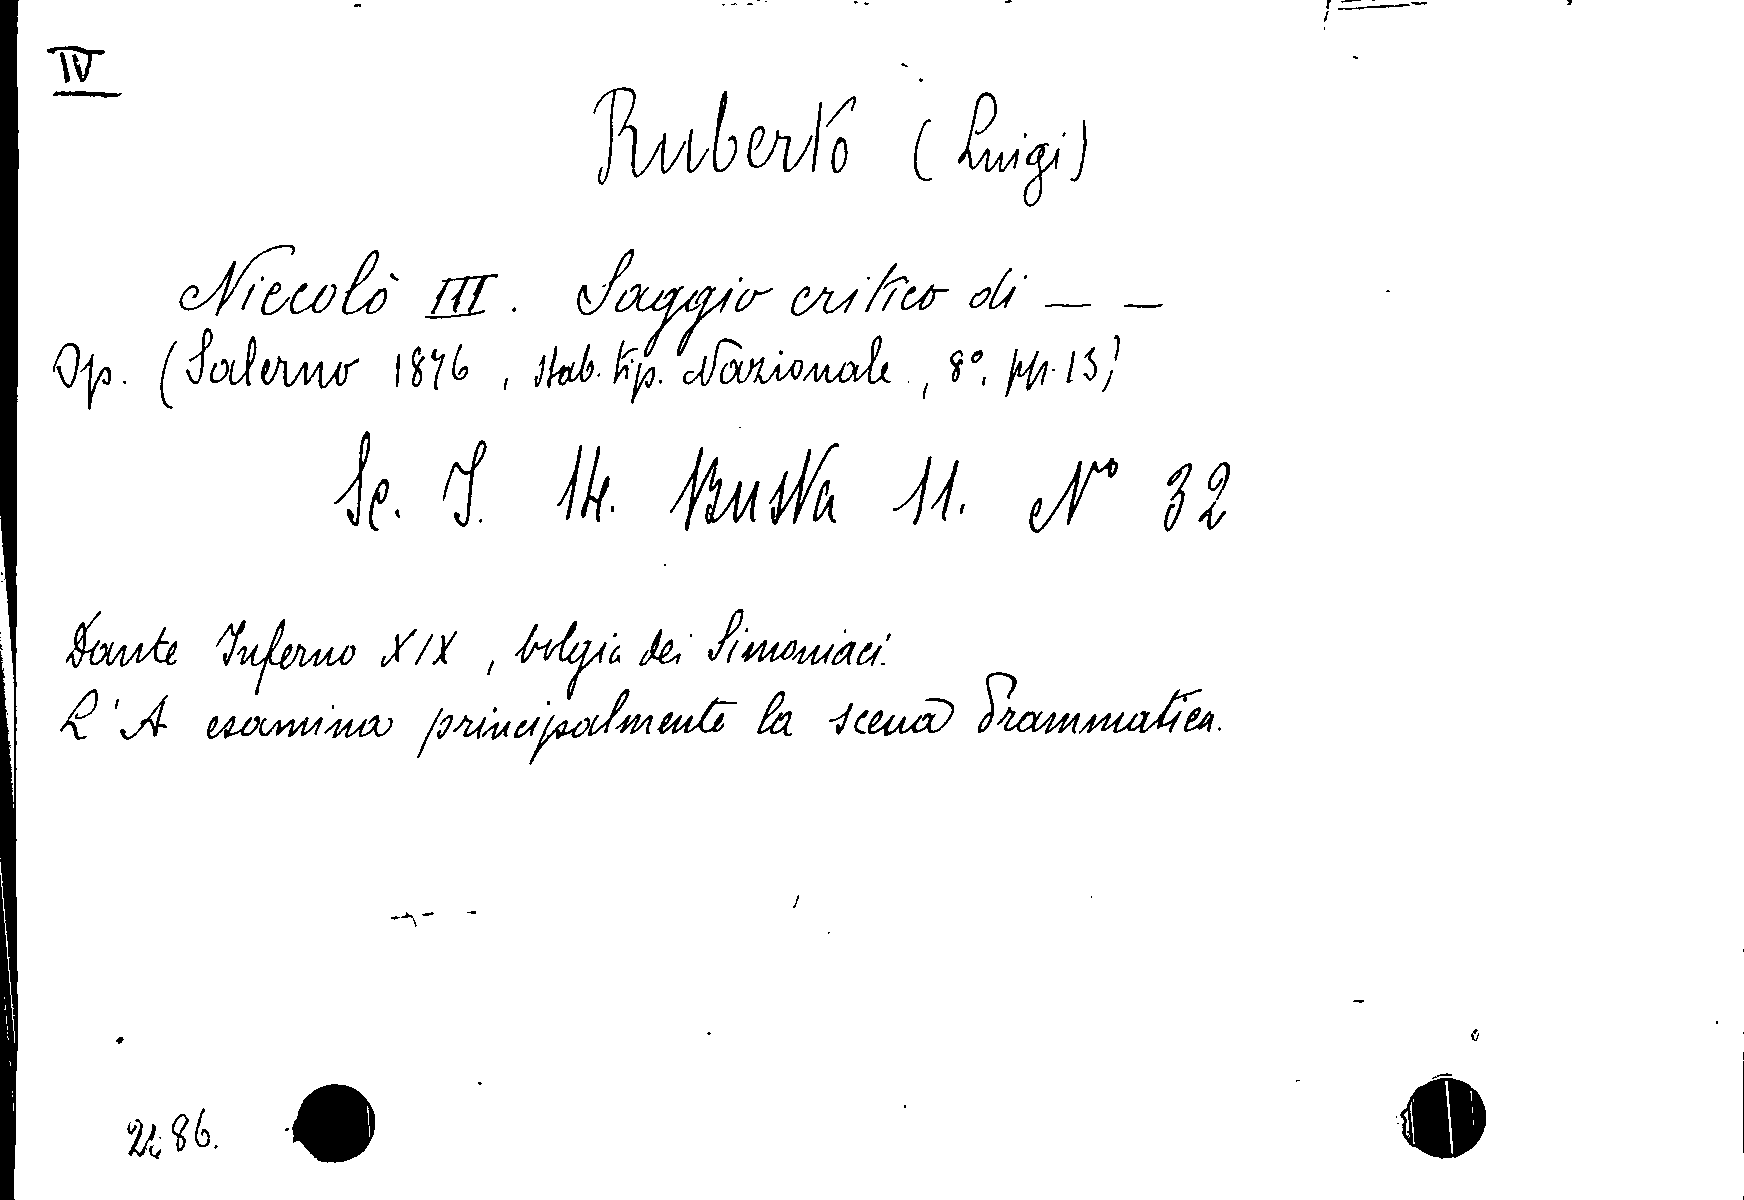 IV
Ruberto (Luigi)
Niccolò III. Saggio critico di — —
Op. (Salerno 1876, stab. tip. Nazionale, 8°. pp. 13)
Sc. I. 14. Busta 11. N° 32
Dante Inferno XIX, bolgia dei Simoniaci.
L'A esamina principalmente la scena drammatica.
86.